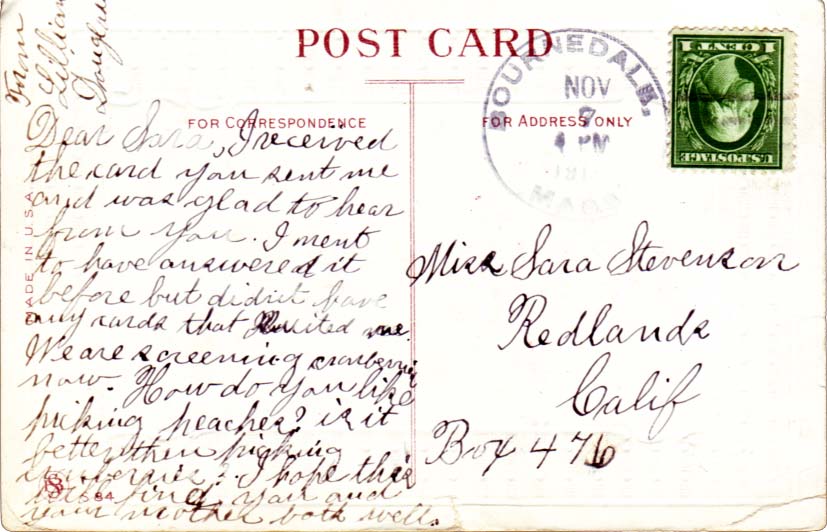 POST CARD
FOR CORRESPONDENCE
FOR ADDRESS ONLY
MADE IN U.S.A.
BOURNEDALE,
NOV
7
4 PM
191
MASS
1 CENT 1
U.S.POSTAGE
From
Lillian
Douglas
Dear Sara, I received
the card you sent me
and was glad to hear
from you. I ment
to have answered it
before but didn't have
any cards that suited me.
We are screening cranberries
now. How do you like
picking peaches? is it
better then picking
cranberries? I hope this
will find you and
your mother both well.
Miss Sara Stevenson
Redlands
Calif
Box 476